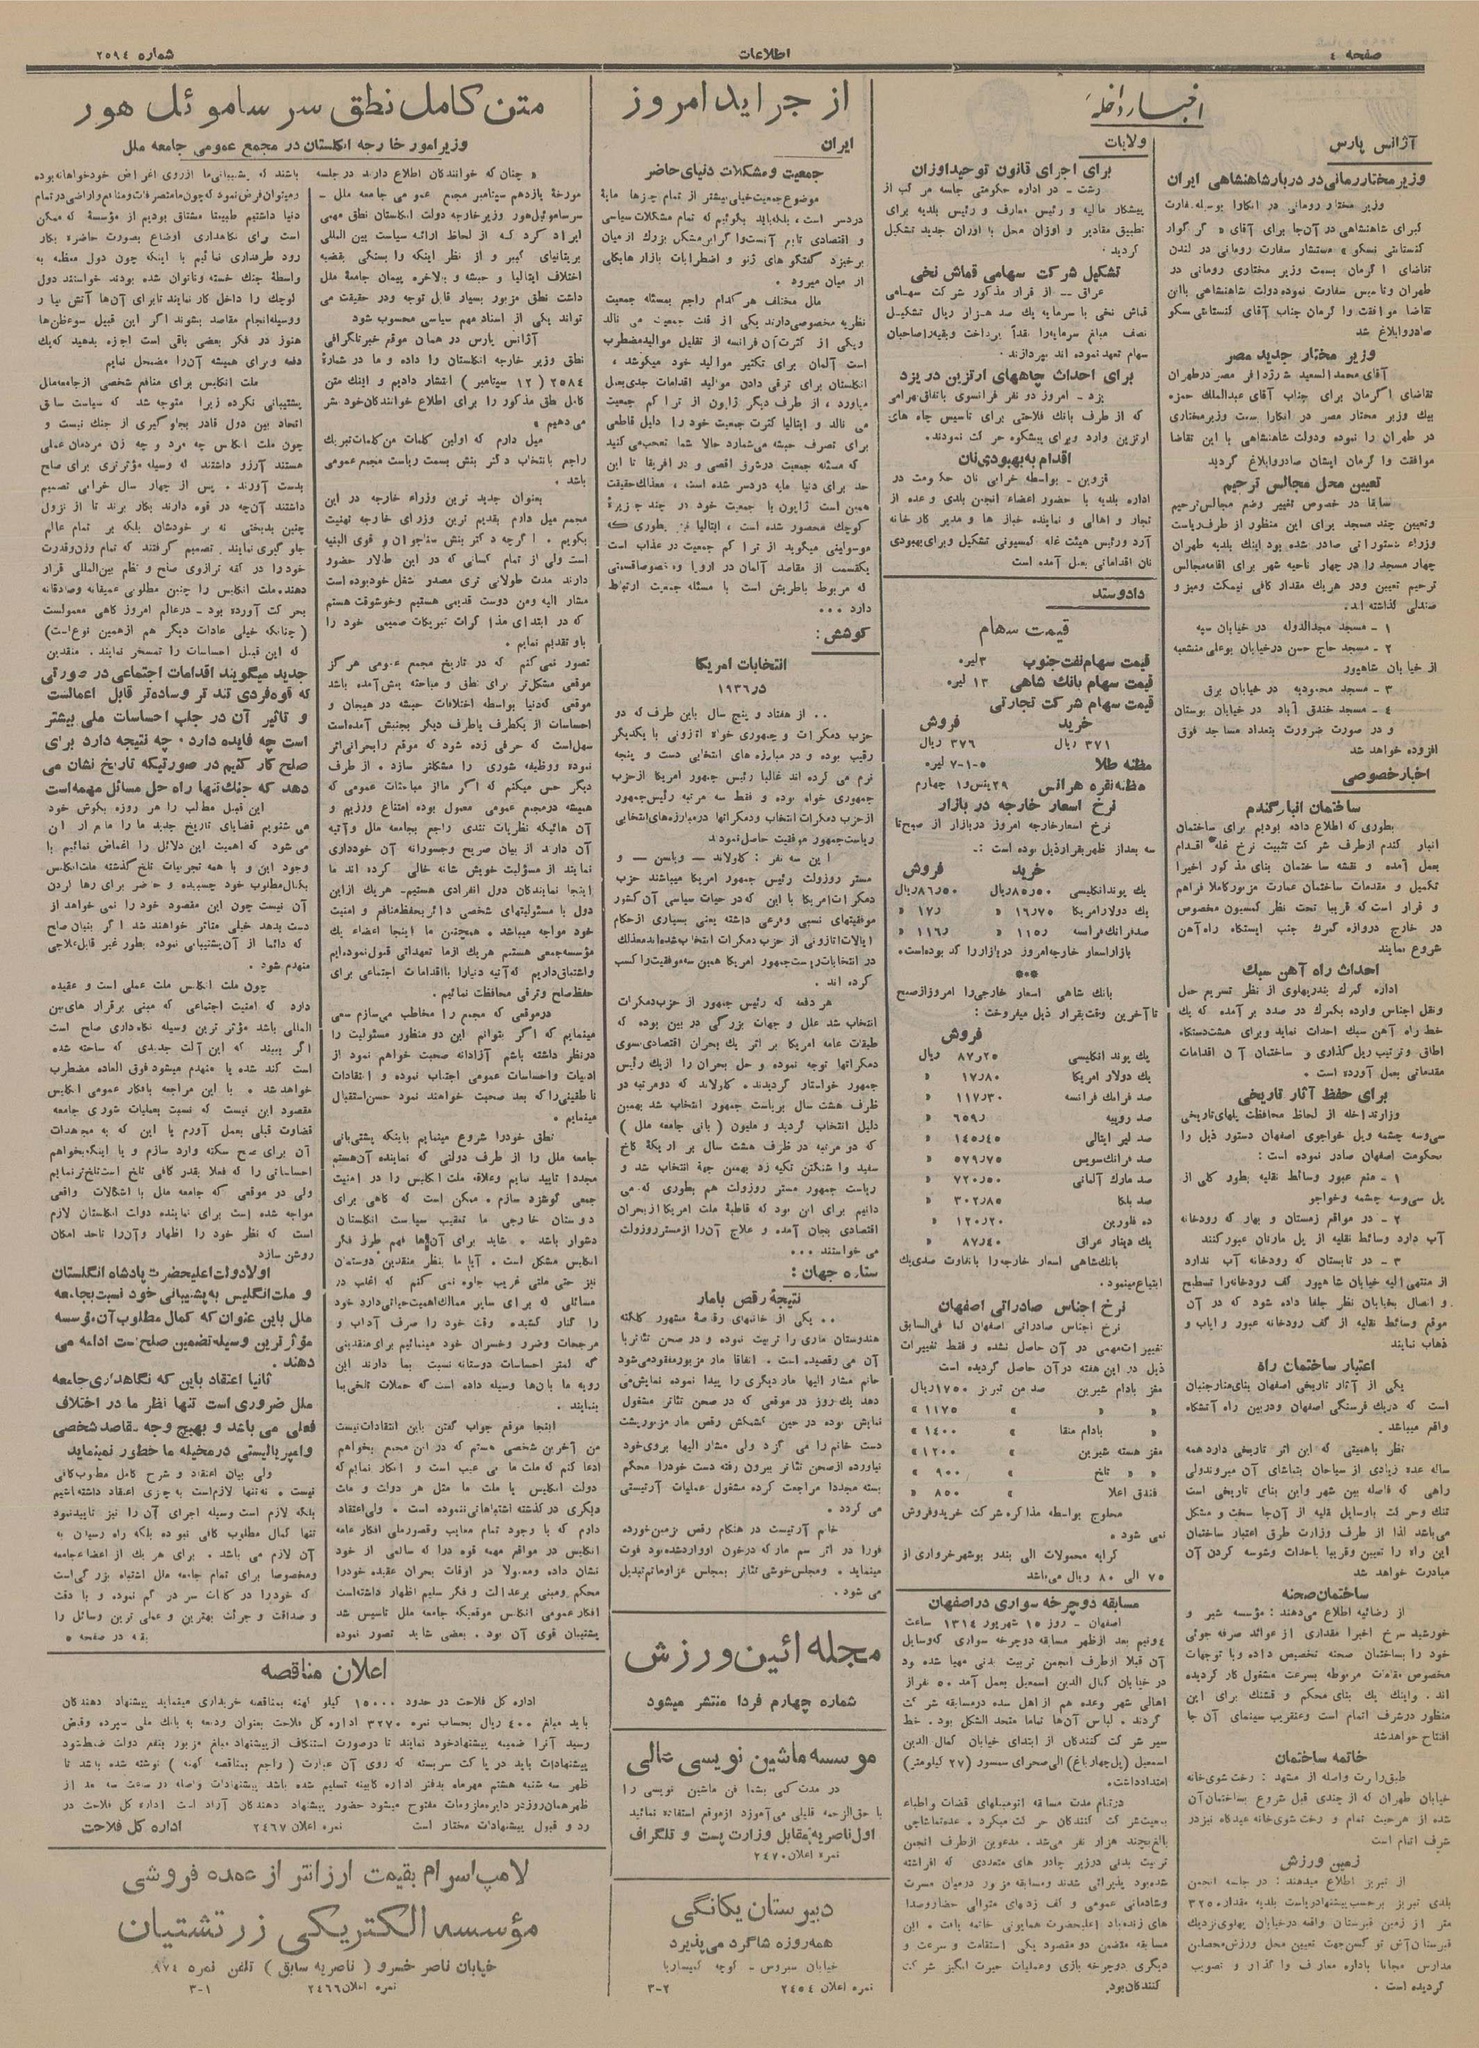 صفحه ٤
اطلاعات
شماره ٢٥٩٤
اخبار داخله
آژانس پارس
وزیر مختار رمانی در دربار شاهنشاهی ایران
وزیر مختار رومانی در آنکارا بوسیله سفارت
کبرای شاهنشاهی در آن‌جا برای آقای « گر گوار
کنستانتی نسکو » مستشار سفارت رومانی در لندن
تقاضای اگرمان بسمت وزیر مختاری رومانی در
طهران و تاسیس سفارت نموده دولت شاهنشاهی با این
تقاضا موافقت و اگرمان جناب آقای کنستانتی نسکو
صادر و ابلاغ شد
وزیر مختار جدید مصر
آقای محمد السعید شارژدافر مصر در طهران
تقاضای اگرمان برای جناب آقای عبدالملک حمزه
بیک وزیر مختار مصر در آنکارا بسمت وزیر مختاری
در طهران را نموده و دولت شاهنشاهی با این تقاضا
موافقت و اگرمان ایشان صادر و ابلاغ گردید
تعیین محل مجالس ترحیم
سابقا در خصوص تغییر وضع مجالس ترحیم
و تعیین چند مسجد برای این منظور از طرف ریاست
وزراء دستوراتی صادر شده بود اینک بلدیه طهران
چهار مسجد را در چهار ناحیه شهر برای اقامه مجالس
ترحیم تعیین و در هریک مقدار کافی نیمکت و میز و
صندلی گذاشته اند.
١ – مسجد مجدالدوله در خیابان سپه
٢ – مسجد حاج حسن در خیابان بوعلی منشعبه
از خیابان شاهپور
٣ – مسجد محمودیه در خیابان برق
٤ – مسجد خندق آباد در خیابان بوستان
و در صورت ضرورت بتعداد مساجد فوق
افزوده خواهد شد
اخبار خصوصی
ساختمان انبار گندم
بطوری که اطلاع داده بودیم برای ساختمان
انبار گندم از طرف شرکت تثبیت نرخ غله اقدام
بعمل آمده و نقشه ساختمان بنای مذکور اخیرا
تکمیل و مقدمات ساختمان عمارت مزبور کاملا فراهم
و قرار است که قریبا تحت نظر کمسیون مخصوص
در خارج دروازه گمرک جنب ایستگاه راه آهن
شروع نمایند
احداث راه آهن سبک
اداره گمرک بندر پهلوی از نظر تسریع حمل
و نقل اجناس وارده بگمرک در صدد بر آمده که یک
خط راه آهن سبک احداث نماید و برای هشت دستگاه
اطاق و ترتیب ریل گذاری و ساختمان آن اقدامات
مقدماتی بعمل آورده است .
برای حفظ آثار تاریخی
وزارت داخله از لحاظ محافظت پلهای تاریخی
سی و سه چشمه و پل خواجوی اصفهان دستور ذیل را
بحکومت اصفهان صادر نموده است :
١ – منع عبور وسائط نقلیه بطور کلی از
پل سی و سه چشمه و خواجو
٢ – در مواقع زمستان و بهار که رودخانه
آب دارد وسائط نقلیه از پل مارنان عبور کنند
٣ – در تابستان که رودخانه آب ندارد
از منتهی الیه خیابان شاهپور کف رودخانه را تسطیح
و اتصال بخیابان نظر جلفا داده شود که در آن
موقع وسائط نقلیه از کف رودخانه عبور و ایاب و
ذهاب نمایند
اعتبار ساختمان راه
یکی از آثار تاریخی اصفهان بنای منار جنبان
است که در یک فرسنگی اصفهان و در بین راه آتشگاه
واقع میباشد .
نظر باهمیتی که این اثر تاریخی دارد همه
ساله عده زیادی از سیاحان بتماشای آن میروند ولی
راهی که فاصله بین شهر و این بنای تاریخی است
تنگ و حرکت با وسایل نقلیه از آن‌جا سخت و مشکل
می‌باشد لذا از طرف وزارت طرق اعتبار ساختمان
این راه را تعیین و قریبا باحداث و شوسه کردن آن
مبادرت خواهد شد
ساختمان صحنه
از رضائیه اطلاع می‌دهند : مؤسسه شیر و
خورشید سرخ اخیرا مقداری از عوائد صرفه جوئی
خود را بساختمان صحنه تخصیص داده و با توجهات
مخصوص مقامات مربوطه بسرعت مشغول کار گردیده
اند . و اینک یک بنای محکم و قشنگ برای این
منظور در شرف اتمام است و عنقریب سینمای آن جا
افتتاح خواهد شد
خاتمه ساختمان
طبق راپرت واصله از مشهد : رخت شوی خانه
خیابان طهران که از چندی قبل شروع بساختمان آن
شده از هر حیث تمام و رخت شوی خانه عیدگاه نیز در
شرف اتمام است
زمین ورزش
از تبریز اطلاع میدهند : در جلسه انجمن
بلدی تبریز بر حسب پیشنهاد ریاست بلدیه مقدار ٣٢٥٠
متر از زمین قبرستان واقعه در خیابان پهلوی نزدیک
جهت تعیین محل ورزش محصلین
مدارس مجانا باداره معارف واگذار و تصویب
گردیده است .
ولایات
برای اجرای قانون توحید اوزان
رشت – در اداره حکومتی جلسه مرکب از
پیشکار مالیه و رئیس معارف و رئیس بلدیه برای
تطبیق مقادیر و اوزان محل با اوزان جدید تشکیل
گردید .
تشکیل شرکت سهامی قماش نخی
عراق – از قرار مذکور شرکت سهامی
قماش نخی با سرمایه یک صد هزار ریال تشکیل
نصف مبلغ سرمایه را نقداً پرداخت و بقیه را صاحبان
سهام تعهد نموده اند بپردازند .
برای احداث چاههای ارتزین در یزد
یزد – امروز دو نفر فرانسوی باتفاق بهرامی
که از طرف بانک فلاحتی برای تاسیس چاه های
ارتزین وارد و برای پیشکوه حرکت نمودند .
اقدام به بهبودی نان
قزوین – بواسطه خرابی نان حکومت در
اداره بلدیه با حضور اعضاء انجمن بلدی و عده از
تجار و اهالی و نماینده خباز ها و مدیر کارخانه
آرد و رئیس هیئت غله کمسیونی تشکیل و برای بهبودی
نان اقداماتی بعمل آمده است
داد و ستد
قیمت سهام
قیمت سهام نفت جنوب ٣ لیره
قیمت سهام بانک شاهی ١٣ لیره
قیمت سهام شرکت تجارتی
خرید فروش
٣٧١ ریال ٣٧٦ ریال
مظنه طلا ٥-١-٧ لیره
مظنه نقره هر انس ٢٩ پنس و ١ چهارم
نرخ اسعار خارجه در بازار
نرخ اسعار خارجه امروز در بازار از صبح تا
سه بعد از ظهر بقرار ذیل بوده است :-
خرید فروش
یک پوند انگلیسی ٨٥٫٥٠ ریال ٨٦٫٥٠ ریال
یک دولار امریکا ١٦٫٧٥ « ١٧٫ «
صد فرانک فرانسه ١١٥٫ « ١١٦٫ «
بازار اسعار خارجه امروز در بازار راکد بوده است.
***
بانک شاهی اسعار خارجی را امروز از صبح
تا آخرین وقت بقرار ذیل میفروخت :
فروش
یک پوند انگلیسی ٨٧٫٢٥ ریال
یک دولار امریکا ١٧٫٨٠ «
صد فرانک فرانسه ١١٧٫٣٠ «
صد روپیه ٦٥٩٫ «
صد لیر ایتالی ١٤٥٫٤٥ «
صد فرانک سویس ٥٧٩٫٧٥ «
صد مارک آلمانی ٧٢٠٫٥٠ «
صد بلگا ٣٠٢٫٨٥ «
ده فلورین ١٢٠٫٢٠ «
یک دینار عراق ٨٧٫٤٠ «
بانک شاهی اسعار خارجه را با تفاوت صدی یک
ابتیاع مینمود.
نرخ اجناس صادراتی اصفهان
نرخ اجناس صادراتی اصفهان کما فی السابق
تغییرات مهمی در آن حاصل نشده و فقط تغییرات
ذیل در این هفته در آن حاصل گردیده است
مغز بادام شیرین صد من تبریز ١٧٥٠ ریال
« « « ١١٧٥ «
« بادام منقا « ١٤٠٠ «
مغز هسته شیرین « ١٢٠٠ «
« « تلخ « ٩٠٠ «
فندق اعلا « ٨٥٠ «
محلوج بواسطه مذاکره شرکت خرید و فروش
نمی شود .
کرایه محمولات الی بندر بوشهر خرواری از
٧٥ الی ٨٠ ریال می‌باشد
مسابقه دوچرخه سواری در اصفهان
اصفهان – روز ١٥ شهریور ١٣١٤ ساعت
٤ و نیم بعد از ظهر مسابقه دوچرخه سواری که وسایل
آن قبلا از طرف انجمن تربیت بدنی مهیا شده بود
در خیابان کمال الدین اسمعیل بعمل آمد ٥٠ نفر از
اهالی شهر و عده هم از اهل سده در مسابقه شرکت
کردند . لباس آن‌ها تماما متحد الشکل بود . خط
سیر شرکت کنندگان از ابتدای خیابان کمال الدین
اسمعیل (پل چهار باغ) الی صحرای سمسور (٢٧ کیلومتر)
امتداد داشت .
در تمام مدت مسابقه اتومبیلهای قضات و اطباء
بمعیت شرکت کنندگان حرکت میکرد . عده تماشاچی
بالغ بچند هزار نفر می‌شد . مدعوین از طرف انجمن
تربیت بدنی در زیر چادر های متعددی که افراشته
شده بود پذیرائی شدند و مسابقه مزبور در میان مسرت
و شادمانی عمومی و کف زدهای متوالی حضار و صدا
های زنده باد اعلیحضرت همایونی خاتمه یافت . این
مسابقه متضمن دو مقصود یکی استقامت و سرعت و
دیگری دوچرخه بازی و عملیات حیرت انگیز شرکت
کنندگان بود.
از جراید امروز
ایران
جمعیت و مشکلات دنیای حاضر
موضوع جمعیت خیلی بیشتر از تمام چیزها مایهٔ
دردسر است ، بلکه باید بگوئیم که تمام مشکلات سیاسی
و اقتصادی تابع آنست و اگر این مشکل بزرگ از میان
برخیزد گفتگو های ژنو و اضطرابات بازارها بکلی
از میان میرود .
ملل مختلف هر کدام راجع بمسئله جمعیت
نظریه مخصوصی دارند یکی از قلت جمعیت می نالد
و یکی از کثرت آن فرانسه از تقلیل موالید مضطرب
است آلمان برای تکثیر موالید خود میکوشد ،
انگلستان برای ترقی دادن موالید اقدامات جدی بعمل
میاورد ، از طرف دیگر ژاپون از تراکم جمعیت
می نالد و ایتالیا کثرت جمعیت خود را دلیل قاطعی
برای تصرف حبشه می‌شمارد حالا شما تعجب می کنید
که مسئله جمعیت در شرق اقصی و در افریقا تا این
حد برای دنیا مایه دردسر شده است ، معذلک حقیقت
همین است ژاپون با جمعیت خود در چند جزیرهٔ
کوچک محصور شده است ، ایتالیا نیز بطوری که
موسولینی میگوید از تراکم جمعیت در عذاب است
یک قسمت از مقاصد آلمان در اروپا و خصوصا قسمتی
که مربوط باطریش است با مسئله جمعیت ارتباط
دارد ...
کوشش :
انتخابات امریکا
در ١٩٣٦
.. از هفتاد و پنج سال باین طرف که دو
حزب دمکرات و جمهوری خواه اتازونی با یکدیگر
رقیب بوده و در مبارزه های انتخابی دست و پنجه
نرم می کرده اند غالبا رئیس جمهور امریکا از حزب
جمهوری خواه بوده و فقط سه مرتبه رئیس جمهور
از حزب دمکرات انتخاب و دمکراتها در مبارزه های انتخابی
ریاست جمهور موفقیت حاصل نمودند
این سه نفر : کلولاند – ویلسن – و
مستر روزولت رئیس جمهور امریکا میباشند حزب
دمکرات امریکا با این که در حیات سیاسی آن کشور
موفقیتهای نسبی و فرعی داشته یعنی بسیاری از حکام
ایالات اتازونی از حزب دمکرات انتخاب شده اند معذلک
در انتخابات ریاست جمهور امریکا همین سه موفقیت را کسب
کرده اند .
هر دفعه که رئیس جمهور از حزب دمکرات
انتخاب شد علل و جهات بزرگی در بین بوده که
طبقات عامه امریکا بر اثر یک بحران اقتصادی سوی
دمکراتها توجه نموده و حل بحران را از یک رئیس
جمهور خواستار گردیدند . کلولاند که دو مرتبه در
ظرف هشت سال بریاست جمهور انتخاب شد بهمین
دلیل انتخاب گردید و ملیون ( بانی جامعه ملل )
که دو مرتبه در ظرف هشت سال بر اریکهٔ کاخ
سفید واشنگتن تکیه زد بهمین جهة انتخاب شد و
ریاست جمهور مستر روزولت هم بطوری که می
دانیم برای این بود که قاطبهٔ ملت امریکا از بحران
اقتصادی بجان آمده و علاج آن‌را از مستر روزولت
می خواستند ...
ستاره جهان :
نتیجهٔ رقص با مار
.. یکی از خانمهای رقاصهٔ مشهور کلکته
هندوستان ماری را تربیت نموده و در صحن تئاتر با
آن می رقصیده است . اتفاقا مار مزبور مفقود می‌شود
خانم مشار الیها مار دیگری را پیدا نموده نمایش می
دهد یک روز در موقعی که در صحن تئاتر مشغول
نمایش بوده در حین کشمکش رقص مار مزبور پشت
دست خانم را می گزد ولی مشار الیها بروی خود
نیاورده از صحن تئاتر بیرون رفته دست خود را محکم
بسته مجددا مراجعت کرده مشغول عملیات آرتیستی
می گردد .
خانم آرتیست در هنگام رقص بزمین خورده
فورا در اثر سم مار که در خون او وارد شده بود فوت
مینماید . و مجلس خوشی تئاتر بمجلس عزا و ماتم تبدیل
می شود .
مجله آئین ورزش
شماره چهارم فردا منتشر میشود
موسسه ماشین نویسی عالی
در مدت کمی بشما فن ماشین نویسی را
با حق الزحمه قلیلی می آموزد از موقع استفاده نمائید
اول ناصریه مقابل وزارت پست و تلگراف
نمره اعلان ٢٤٧٠
دبیرستان یگانگی
همه روزه شاگرد می پذیرد
خیابان سیروس – کوچه کمیساریا
نمره اعلان ٢٤٥٤ ٢-٣
متن کامل نطق سر ساموئل هور
وزیر امور خارجه انگلستان در مجمع عمومی جامعه ملل
« چنان که خوانندگان اطلاع دارند در جلسه
مورخهٔ یازدهم سپتامبر مجمع عمومی جامعه ملل –
سر ساموئل هور وزیر خارجه دولت انگلستان نطق مهمی
ایراد کرد که از لحاظ ارائه سیاست بین المللی
بریتانیای کبیر و از نظر اینکه وابستگی بقضیه
اختلاف ایتالیا و حبشه و بالاخره پیمان جامعهٔ ملل
داشت نطق مزبور بسیار قابل توجه و در حقیقت می
تواند یکی از اسناد مهم سیاسی محسوب شود
آژانس پارس در همان موقع خبر تلگرافی
نطق وزیر خارجه انگلستان را داده و ما در شمارهٔ
٢٥٨٤ ( ١٢ سپتامبر ) انتشار دادیم و اینک متن
کامل نطق مذکور را برای اطلاع خوانندگان خود نشر
می‌دهیم »
میل دارم که اولین کلمات من کلمات تبریک
راجع بانتخاب دکتر بنش بسمت ریاست مجمع عمومی
باشد .
بعنوان جدید ترین وزراء خارجه در این
مجمع میل دارم بقدیم ترین وزرای خارجه تهنیت
بگویم . اگرچه دکتر بنش سنا جوان و قوی البنیه
است ولی از تمام کسانی که در این طالار حضور
دارند مدت طولانی تری مصدر شغل خود بوده است
مشار الیه و من دوست قدیمی هستیم و خوشوقت هستم
که در ابتدای مذاکرات تبریکات صمیمی خود را
باو تقدیم نمایم .
تصور نمی‌کنم که در تاریخ مجمع عمومی هرگز
موقعی مشکل‌تر برای نطق و مباحثه پیش آمده باشد
موقعی که دنیا بواسطه اختلافات حبشه در هیجان و
احساسات از یک طرف یا طرف دیگر بجنبش آمده است
سهل است که حرفی زده شود که موقع را بحرانی‌تر
نموده و وظیفه شوری را مشکلتر سازد . از طرف
دیگر حس میکنم که اگر ما از مباحثات عمومی که
همیشه در مجمع عمومی معمول بوده امتناع ورزیم و
آن هائیکه نظریات تندی راجع بجامعه ملل و آتیه
آن دارند از بیان صریح و جسورانه آن خودداری
نمایند از مسؤلیت خویش شانه خالی کرده اند ما
اینجا نمایندگان دول انفرادی هستیم- هریک از این
دول با مسئولیتهای شخصی دائر بحفظ منافع و امنیت
خود مواجه میباشد . همچنین ما اینجا اعضاء یک
مؤسسه جمعی هستیم هریک از ما تعهداتی قبول نموده‌ایم
و اشتیاق داریم که آتیه دنیا را با اقدامات اجتماعی برای
حفظ صلح و ترقی محافظت نمائیم .
در موقعی که مجمع را مخاطب می‌سازم سعی
مینمایم که اگر بتوانم این دو منظور مسئولیت را
در نظر داشته باشم آزادانه صحبت خواهم نمود از
ادبیات و احساسات عمومی اجتناب نموده و انتقادات
ناطقینی را که بعد صحبت خواهند نمود حسن استقبال
مینمایم .
نطق خود را شروع مینمایم باینکه پشتی‌بانی
جامعه ملل را از طرف دولتی که نماینده آن هستم
مجددا تایید نمایم و علاقه ملت انگلیس را در امنیت
جمعی گوشزد سازم . ممکن است که گاهی برای
دوستان خارجی ما تعقیب سیاست انگلستان
دشوار باشد . شاید برای آن‌ها فهم طرز فکر
انگلیس مشکل است . آیا ما بنظر منقدین دوستمان
نیز حتی ملتی غریب جلوه نمی کنم که اغلب در
مسائلی که برای سایر ممالک اهمیت حیاتی دارد خود
را کنار کشیده وقت خود را صرف آداب و
مرجحات و ضرر و خسران خود مینمائیم برای منقدینی
که کمتر احساسات دوستانه نسبت بما دارند این
رویه ما بآن‌ها وسیله داده است که حملات تلخی بما
بنمایند .
اینجا موقع جواب گفتن باین انتقادات نیست
من آخرین شخصی هستم که در این مجمع بخواهم
ادعا کنم که ملت ما بی عیب است و انکار نمایم که
دولت انگلیس یا ملت ما مثل هر دولت و ملت
دیگری در گذشته اشتباهاتی ننموده است . ولی اعتقاد
دارم که با وجود تمام معایب و قصور ملی افکار عامه
انگلیس در مواقع مهمه قوه درا که سالمی از خود
نشان داده و معمولا در اوقات بحران عقیده خود را
محکم و مبنی بر عدالت و فکر سلیم اظهار داشته است
افکار عمومی انگلیس موقعیکه جامعه ملل تاسیس شد
پشتیبان قوی آن بود . بعضی شاید تصور نموده
باشند که پشتیبانی ما از روی اغراض خودخواهانه بوده
و میتوان فرض نمود که چون ما متصرفات و منافع و اراضی در تمام
دنیا داشتیم طبیعتا مشتاق بودیم از مؤسسهٔ که ممکن
است برای نگاهداری اوضاع بصورت حاضره بکار
رود طرفداری نمائیم یا اینکه چون دول معظمه به
واسطهٔ جنگ خسته و ناتوان شده بودند خواستند دول
کوچک را داخل کار نمایند تا برای آن‌ها آتش بیار و
وسیله انجام مقاصد بشوند اگر این قبیل سوء ظن‌ها
هنوز در فکر بعضی باقی است اجازه بدهید که یک
دفعه و برای همیشه آن‌ها را مضمحل نمایم
ملت انگلیس برای منافع شخصی از جامعه ملل
پشتیبانی نکرده زیرا متوجه شد که سیاست سابق
اتحاد بین دول قادر بجلوگیری از جنگ نیست و
چون ملت انگلیس چه مرد و چه زن مردمان عملی
هستند آرزو داشتند که وسیله مؤثرتری برای صلح
بدست آورند . پس از چهار سال خرابی تصمیم
داشتند آن‌چه در قوه دارند بکار برند تا از نزول
چنین بدبختی نه بر خودشان بلکه بر تمام عالم
جلوگیری نمایند . تصمیم گرفتند که تمام وزن و قدرت
خود را در کفه ترازوی صلح و نظم بین‌المللی قرار
دهند. ملت انگلیس را چنین مطلوبی عمیقانه و صادقانه
بحرکت آورده بود – در عالم امروز گاهی معمولست
( چنانکه خیلی عادات دیگر هم از همین نوع است )
که این قبیل احساسات را تمسخر نمایند . منقدین
جدید میگویند اقدامات اجتماعی در صورتی
که قوه فردی تند تر و ساده‌تر قابل اعمالست
و تاثیر آن در جلب احساسات ملی بیشتر
است چه فایده دارد . چه نتیجه دارد برای
صلح کار کنیم در صورتیکه تاریخ نشان می
دهد که جنگ تنها راه حل مسائل مهمه است
این قبیل مطلب را هر روزه بگوش خود
می شنویم قضایای تاریخ جدید ما را مانع از آن
می شود که اهمیت این دلائل را اغماض نمائیم با
وجود این و با همه تجربیات تلخ گذشته ملت انگلیس
بکمال مطلوب خود چسبیده و حاضر برای رها کردن
آن نیست چون این مقصود خود را نمی خواهد از
دست بدهد خیلی متاثر خواهند شد اگر بنیان صلح
که دائما از آن پشتیبانی نموده بطور غیر قابل علاجی
منهدم شود .
چون ملت انگلیس ملت عملی است و عقیده
دارد که امنیت اجتماعی که مبنی بر قرار های بین
المللی باشد مؤثر ترین وسیله نگاه داری صلح است
اگر ببیند که این آلت جدیدی که ساخته شده
است کند شده یا منهدم میشود فوق العاده مضطرب
خواهد شد . با این مراجعه بافکار عمومی انگلیس
مقصود این نیست که نسبت بعملیات شوری جامعه
قضاوت قبلی بعمل آورم یا این که به مجاهدات
آن برای صلح سکته وارد سازم و یا اینکه بخواهم
احساساتی را که فعلا بقدر کافی تلخ است تلخ‌تر نمایم
ولی در موقعی که جامعه ملل با اشکالات واقعی
مواجه شده است برای نماینده دولت انگلستان لازم
است که نظر خود را اظهار و آن‌را تا حد امکان
روشن سازد
اولا دولت اعلیحضرت پادشاه انگلستان
و ملت انگلیس به پشتیبانی خود نسبت بجامعه
ملل باین عنوان که کمال مطلوب آن، مؤسسه
مؤثر ترین وسیله تضمین صلح است ادامه می
دهند .
ثانیا اعتقاد باین که نگاهداری جامعه
ملل ضروری است تنها نظر ما در اختلاف
فعلی می باشد و بهیچ وجه مقاصد شخصی
و امپریالیستی در مخیله ما خطور نمینماید
ولی بیان اعتقاد و شرح کامل مطلوب کافی
نیست . نه تنها لازم است به چیزی اعتقاد داشته باشیم
بلکه لازم است وسیله اجرای آن را نیز تایید نمود
تنها کمال مطلوب کافی نبوده بلکه راه رسیدن به
آن لازم می باشد . برای هر یک از اعضاء جامعه
و مخصوصا برای تمام جامعه ملل اشتباه بزرگی است
که خود را در کلمات سر در گم نموده و با دقت
و صداقت و جرئت بهترین و عملی ترین وسائل را
بقیه در صفحه ٥
اعلان مناقصه
اداره کل فلاحت در حدود ١٥٠٠٠ کیلو کهنه بمناقصه خریداری مینماید پیشنهاد دهندگان
باید مبلغ ٤٠٠ ریال بحساب نمره ٣٢٧٠ اداره کل فلاحت بعنوان ودیعه به بانک ملی سپرده و قبض
رسید آنرا ضمیمه پیشنهاد خود نمایند تا در صورت استنکاف از پیشنهاد مبلغ مزبور بنفع دولت ضبط شود
پیشنهادات باید در پاکت سربسته که روی آن عبارت ( راجع بمناقصه کهنه ) نوشته شده باشد تا
ظهر سه شنبه هشتم مهرماه بدفتر اداره کابینه تسلیم شده باشد پیشنهادات واصله در ساعت سه بعد از
ظهر همان روز در دایره ملزومات مفتوح میشود حضور پیشنهاد دهندگان آزاد است اداره کل فلاحت در
رد و قبول پیشنهادات مختار است نمره اعلان ٢٤٦٧ اداره کل فلاحت
لامپ اسرام بقیمت ارزانتر از عمده فروشی
مؤسسه الکتریکی زرتشتیان
خیابان ناصر خسرو ( ناصریه سابق ) تلفن نمره ٩٧٤
نمره اعلان ٢٤٦٦ ١-٣